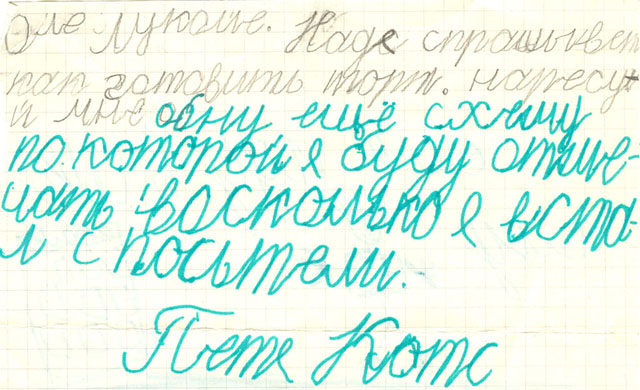 Оле Лукоие. Надя спрашывает
как готовить торт. наресу-
й мне одну ещё схему
по которой я буду отме-
чать восколько я вста-
л с посьтели.
Петя Котс